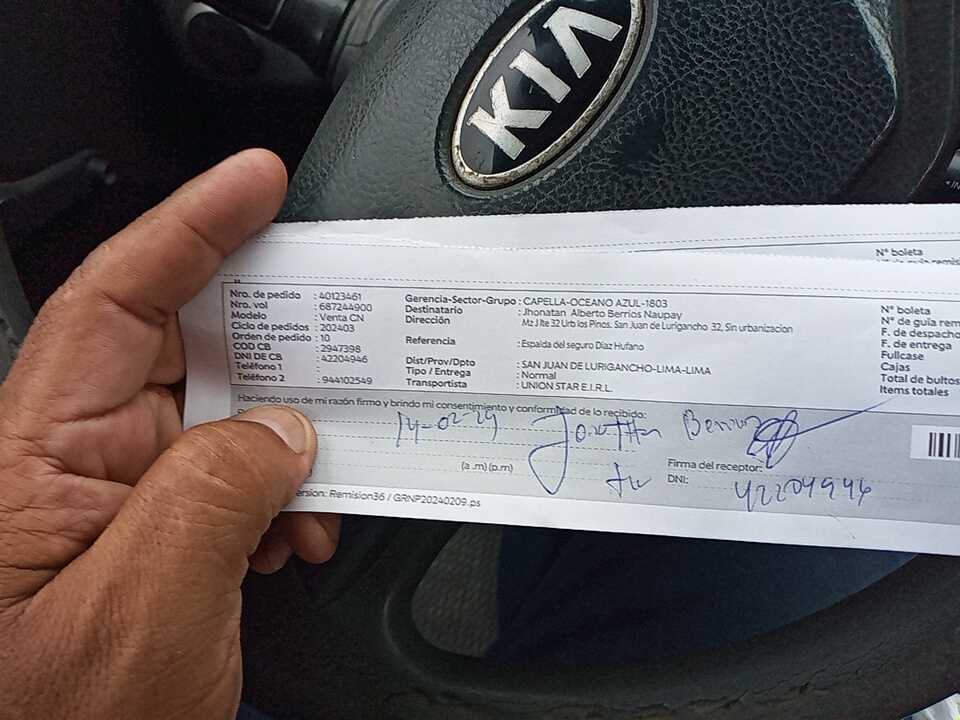 KIA
N° boleta
Nro. de pedido : 40123461
Nro. vol : 687244900
Modelo : Venta CN
Ciclo de pedidos : 202403
Orden de pedido : 10
COD CB : 2947398
DNI DE CB : 42204946
Teléfono 1 :
Teléfono 2 : 944102549
Gerencia-Sector-Grupo : CAPELLA-OCEANO AZUL-1803
Destinatario : Jhonatan Alberto Berrios Naupay
Dirección : Mz J lte 32 Urb los Pinos. San Juan de Lurigancho 32, Sin urbanizacion
Referencia : Espalda del seguro Diaz Hufano
Dist/Prov/Dpto : SAN JUAN DE LURIGANCHO-LIMA-LIMA
Tipo / Entrega : Normal
Transportista : UNION STAR E.I.R.L.
N° boleta
N° de guía rem
F. de despacho
F. de entrega
Fullcase
Cajas
Total de bultos
Items totales
Haciendo uso de mi razón firmo y brindo mi consentimiento y conformidad de lo recibido:
14-02-24 Jonatan Berrios
(a .m) (p.m)
Firma del receptor:
DNI: 42204946
ersion: Remision36 / GRNP20240209.ps